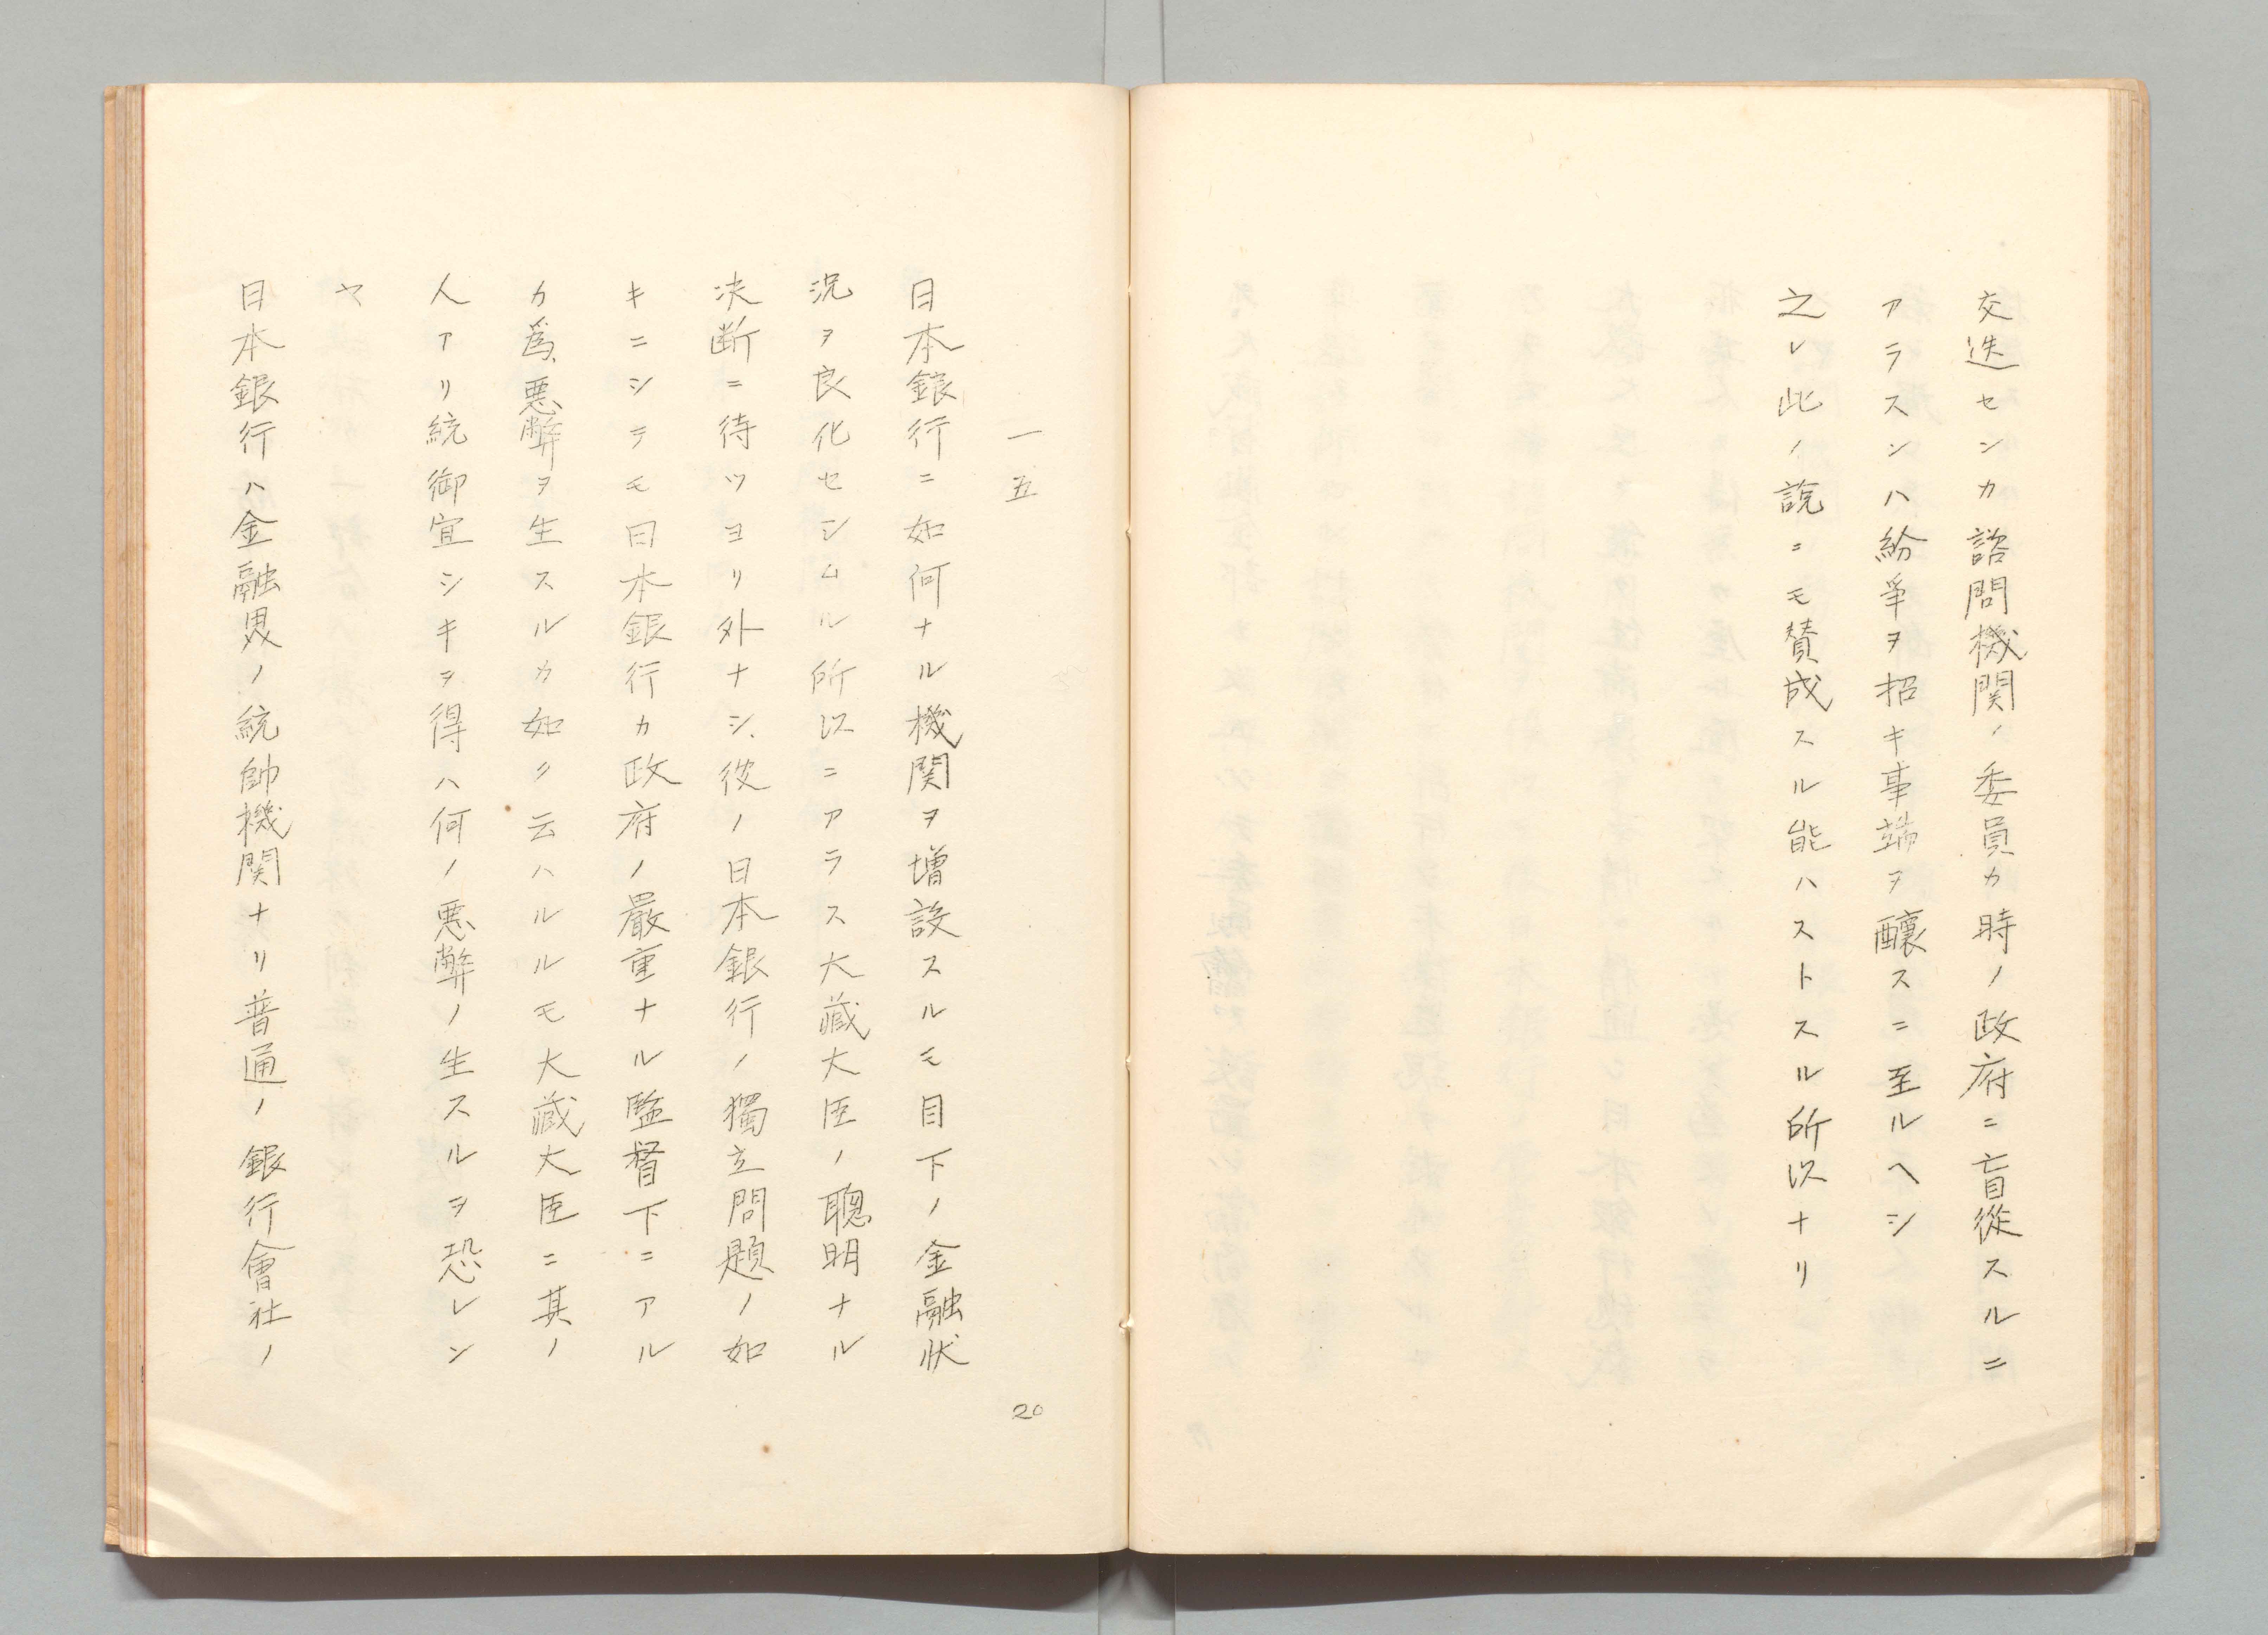 交迭センカ諮問機関ノ委員カ時ノ政府ニ盲從スルニ
アラスンハ紛爭ヲ招キ事端ヲ釀スニ至ルヘシ
之レ此ノ説ニモ賛成スル能ハストスル所以ナリ
一五
日本銀行ニ如何ナル機関ヲ増設スルモ目下ノ金融状
況ヲ良化セシムル所以ニアラス大藏大臣ノ聰明ナル
決断ニ待ツヨリ外ナシ、彼ノ日本銀行ノ獨立問題ノ如
キニシテモ日本銀行カ政府ノ嚴重ナル監督下ニアル
カ爲、悪弊ヲ生スルカ如ク云ハルルモ大藏大臣ニ其ノ
人アリ統御宜シキヲ得ハ何ノ悪弊ノ生スルヲ恐レン
ヤ
日本銀行ハ金融界ノ統帥機関ナリ普通ノ銀行會社ノ
20